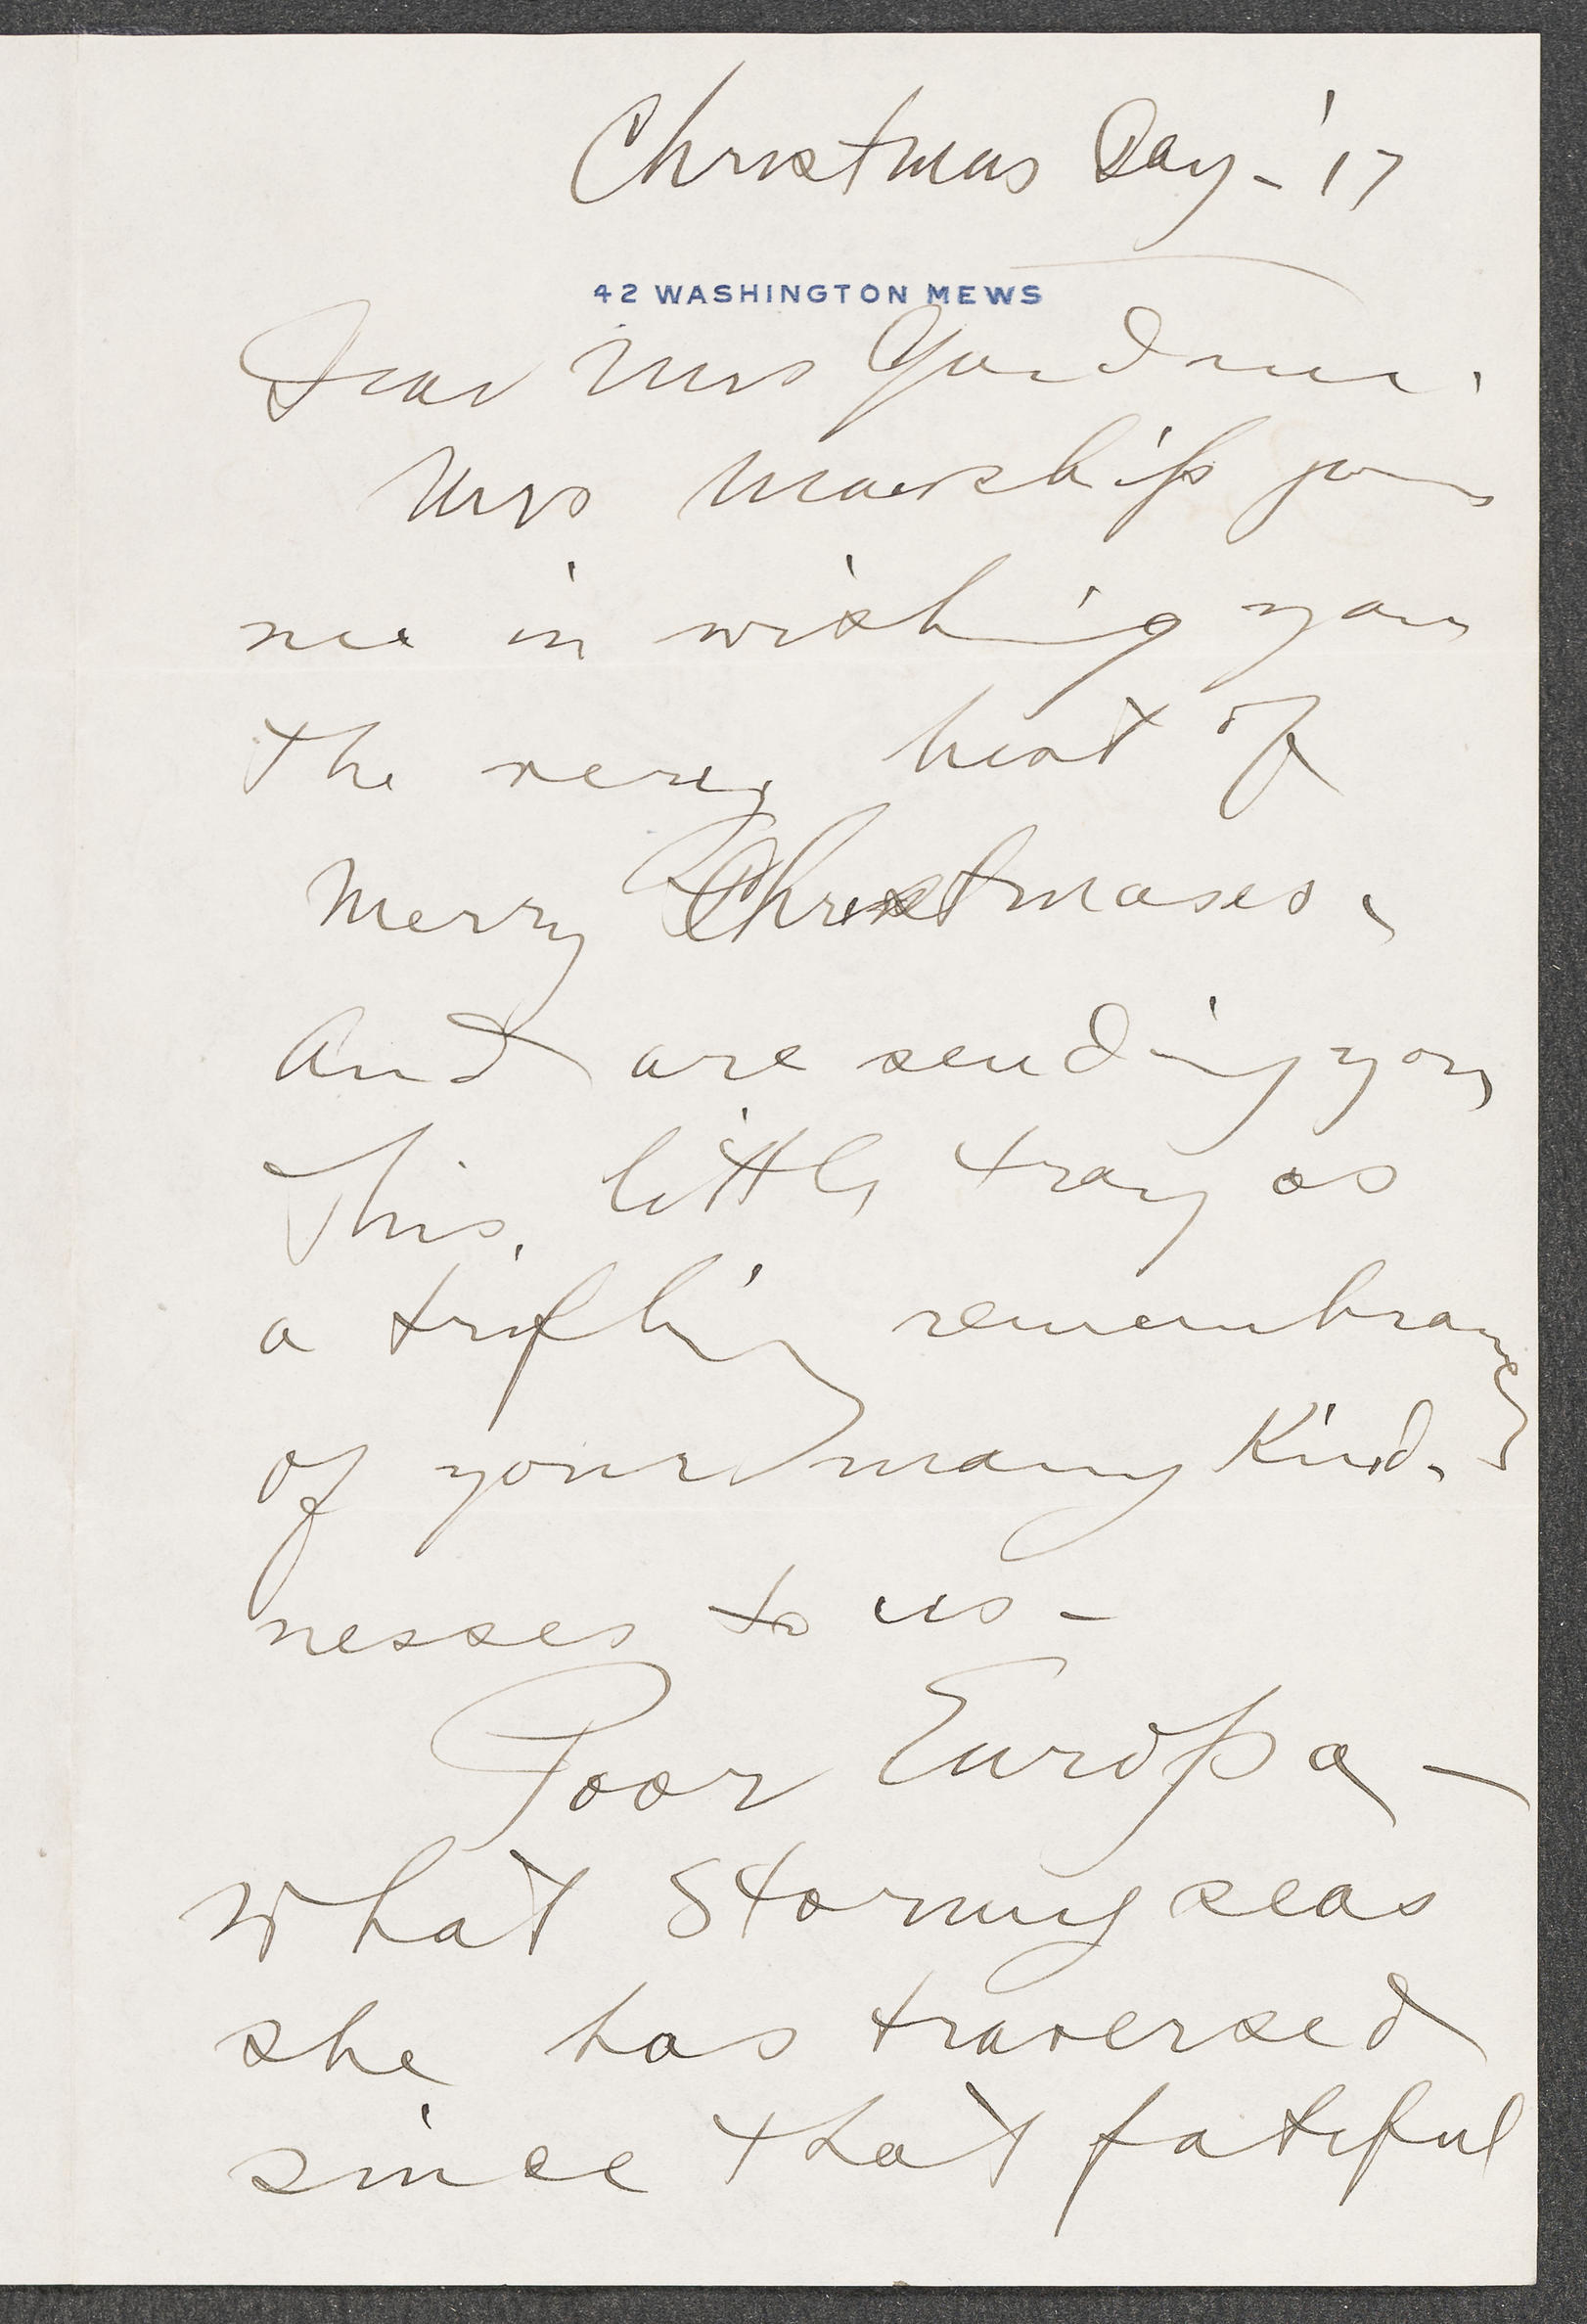 Christmas Day - '17
42 WASHINGTON MEWS
Dear Mrs Gardner.
Mrs joins
me in wishing you
the very best of
Merry Christmases,
and are sending you
this little tray as
a trifling remembrance
of your many kind-
nesses to us -
Poor Europa -
What stormy seas
she has traversed
since that fateful